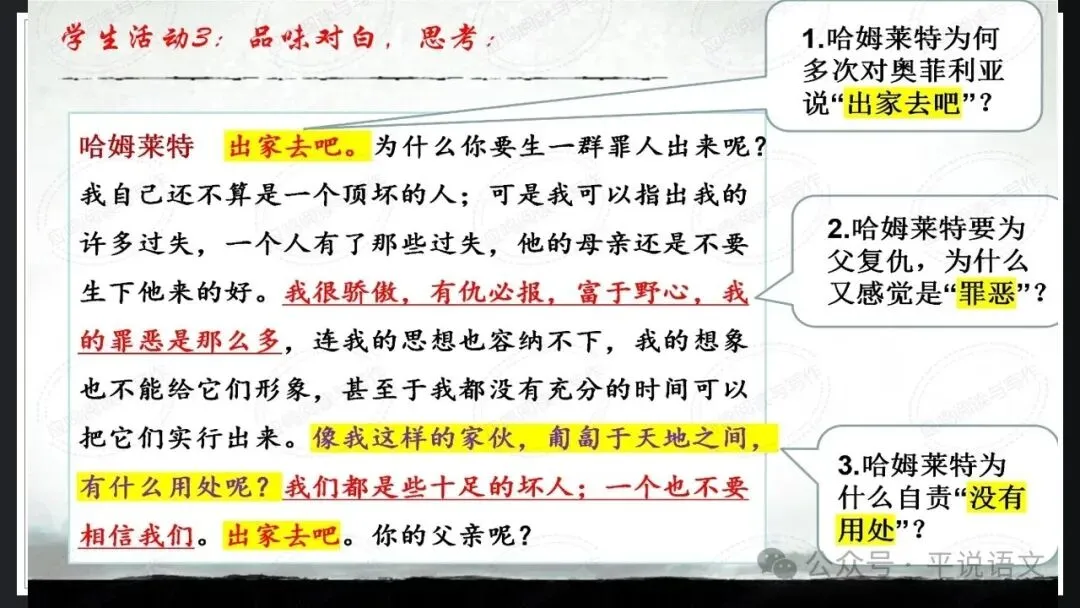 学生活动3：品味对白，思考：
哈姆莱特 出家去吧。为什么你要生一群罪人出来呢？
我自己还不算是一个顶坏的人；可是我可以指出我的
许多过失，一个人有了那些过失，他的母亲还是不要
生下他来的好。我很骄傲，有仇必报，富于野心，我
的罪恶是那么多，连我的思想也容纳不下，我的想象
也不能给它们形象，甚至于我都没有充分的时间可以
把它们实行出来。像我这样的家伙，匍匐于天地之间，
有什么用处呢？我们都是些十足的坏人；一个也不要
相信我们。出家去吧。你的父亲呢？
1.哈姆莱特为何
多次对奥菲利亚
说“出家去吧”？
2.哈姆莱特要为
父复仇，为什么
又感觉是“罪恶”？
3.哈姆莱特为
什么自责“没有
用处”？
公众号·平说语文